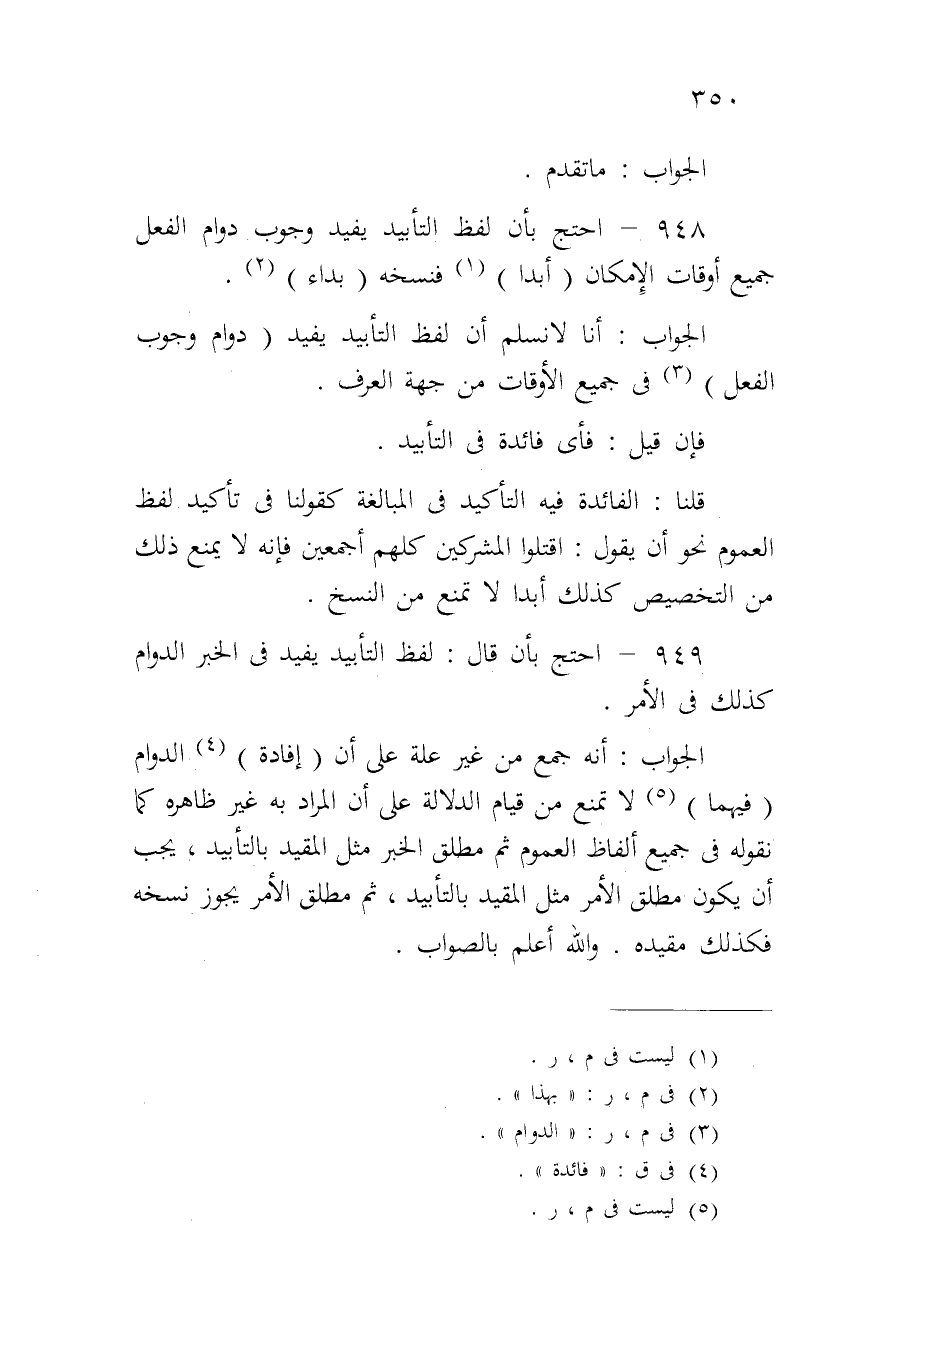 ٣٥٠
الجواب : ماتقدم .
٩٤٨ – احتج بأن لفظ التأبيد يفيد وجوب دوام الفعل
جميع أوقات الإمكان ( أبدا ) (١) فنسخه ( بداء ) (٢) .
الجواب : أنا لانسلم أن لفظ التأبيد يفيد ( دوام وجوب
الفعل ) (٣) فى جميع الأوقات من جهة العرف .
فإن قيل : فأى فائدة فى التأبيد .
قلنا : الفائدة فيه التأكيد فى المبالغة كقولنا فى تأكيد لفظ
العموم نحو أن يقول : اقتلوا المشركين كلهم أجمعين فإنه لا يمنع ذلك
من التخصيص كذلك أبدا لا تمنع من النسخ .
٩٤٩ – احتج بأن قال : لفظ التأبيد يفيد فى الخبر الدوام
كذلك فى الأمر .
الجواب : أنه جمع من غير علة على أن ( إفادة ) (٤) الدوام
( فيهما ) (٥) لا تمنع من قيام الدلالة على أن المراد به غير ظاهره كما
نقوله فى جميع ألفاظ العموم ثم مطلق الخبر مثل المقيد بالتأبيد ، يجب
أن يكون مطلق الأمر مثل المقيد بالتأبيد ، ثم مطلق الأمر يجوز نسخه
فكذلك مقيده . والله أعلم بالصواب .
(١) ليست فى م ، ر .
(٢) فى م ، ر : « بهذا » .
(٣) فى م ، ر : « الدوام » .
(٤) فى ق : « فائدة » .
(٥) ليست فى م ، ر .